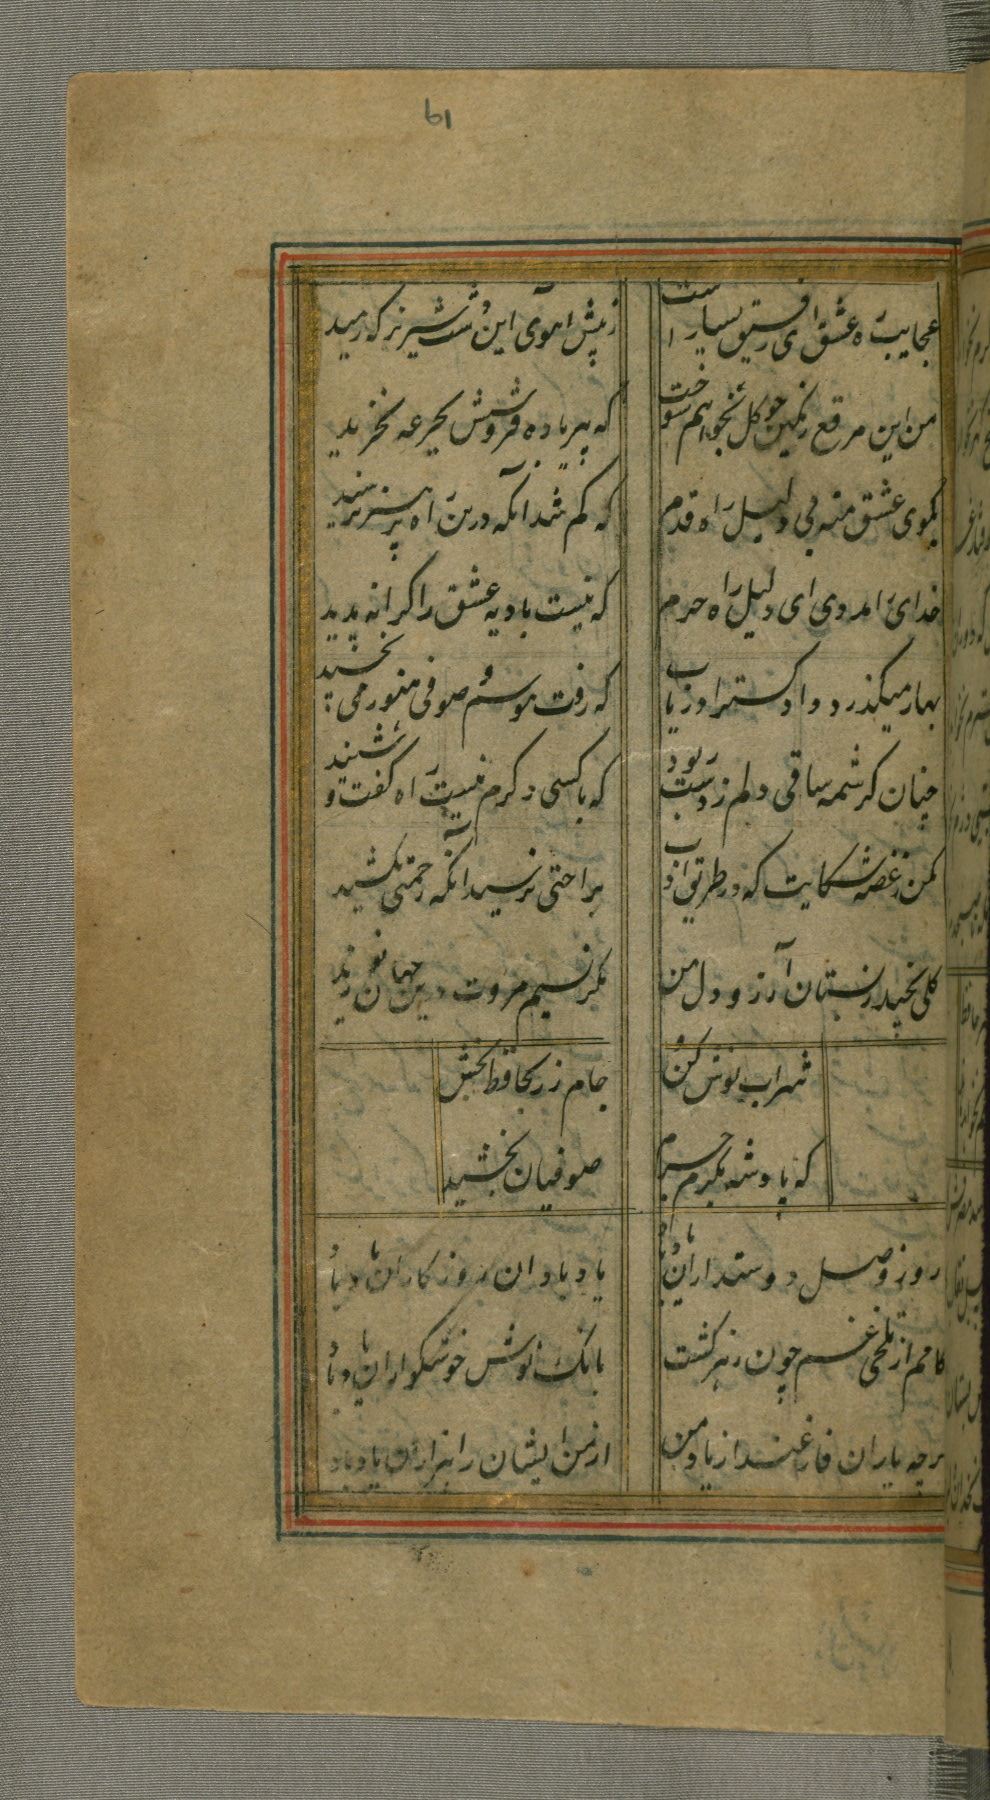 61
عجایب ره عشق ای رفیق بسیار است
ز پیش آهوی این دشت شیر نر که رمید
من این مرقع رنگین چو گل نخواهم سوخت
که پیر باده فروشش بجرعه نخرید
بکوی عشق منه بی دلیل راه قدم
که کم شد آنکه درین راه برهبری نرسید
خدای را مددی ای دلیل راه حرم
که نیست بادیه عشق را کرانه پدید
بهار میکذرد دادکسترا دریاب
که رفت موسم و صوفی هنوز می نچشید
چنان کرشمه ساقی دلم ز دست ربود
که با کسی دکرم نیست راه کفت و شنید
مکن ز غصه شکایت که در طریق ادب
براحتی نرسید آنکه زحمتی نکشید
کلی نچید ز بستان آرزو دل من
مکر نسیم مروت درین جهان نوزید
شراب نوش کن
جام زر بحافظ بخش
که پادشه بکرم جرم
صوفیان بخشید
روز وصل دوستداران یاد باد
یاد باد آن روزکاران یاد باد
کامم از تلخی غم چون زهر کشت
بانک نوش خوشکواران یاد باد
کرچه یاران فارغند از یاد من
از من ایشان را هزاران یاد باد